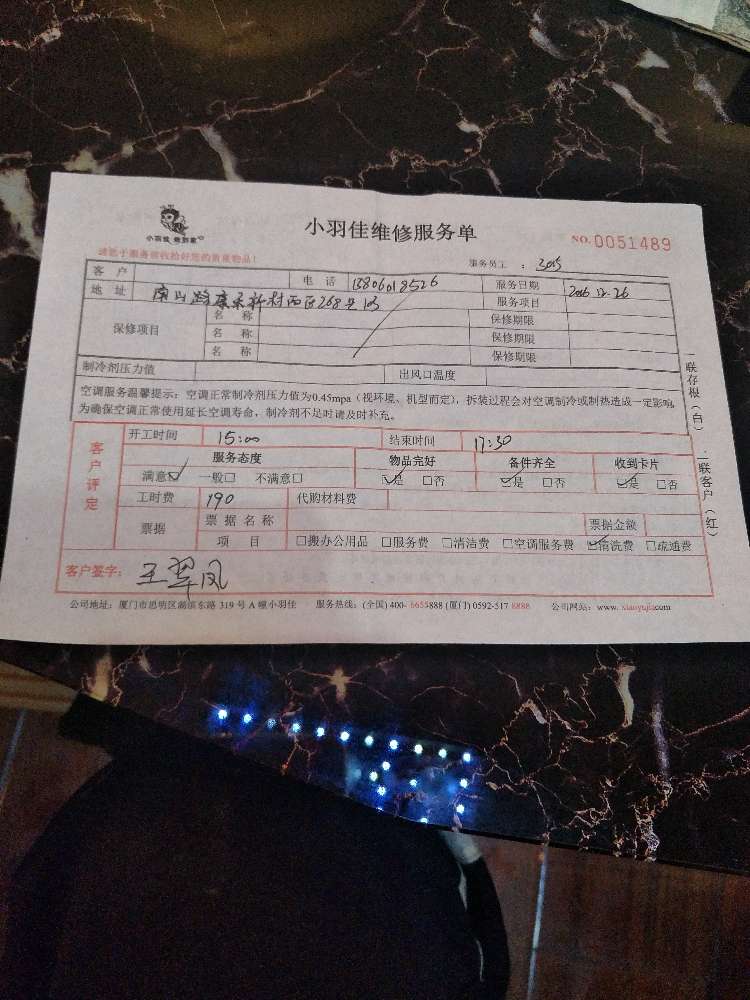 小羽佳 找到家
小羽佳维修服务单
NO.0051489
请您于服务前收拾好您的贵重物品!
服务员工 : 3015
客 户 电 话 13806018526 服务日期 2016.12.26
地 址 南山路康乐新村西区268号103 服务项目
保修项目 名 称 保修期限
名 称 保修期限
名 称 保修期限
制冷剂压力值 出风口温度
空调服务温馨提示:空调正常制冷剂压力值为0.45mpa(视环境、机型而定),拆装过程会对空调制冷或制热造成一定影响,
为确保空调正常使用延长空调寿命,制冷剂不足时请及时补充。
客户评定
开工时间 15:00 结束时间 17:30
服务态度 物品完好 备件齐全 收到卡片
满意☑ 一般□ 不满意□ ☑是 □否 ☑是 □否 ☑是 □否
工时费 190 代购材料费
票据 票 据 名 称 票据金额
项 目 □搬办公用品 □服务费 □清洁费 □空调服务费 ☑清洗费 □疏通费
客户签字: 王翠凤
公司地址:厦门市思明区湖滨东路 319 号 A 幢小羽佳 服务热线:(全国) 400- 6655888 (厦门) 0592-517 8888 公司网站:www. xiaoyujia.com
一联存根(白) 二联客户(红)